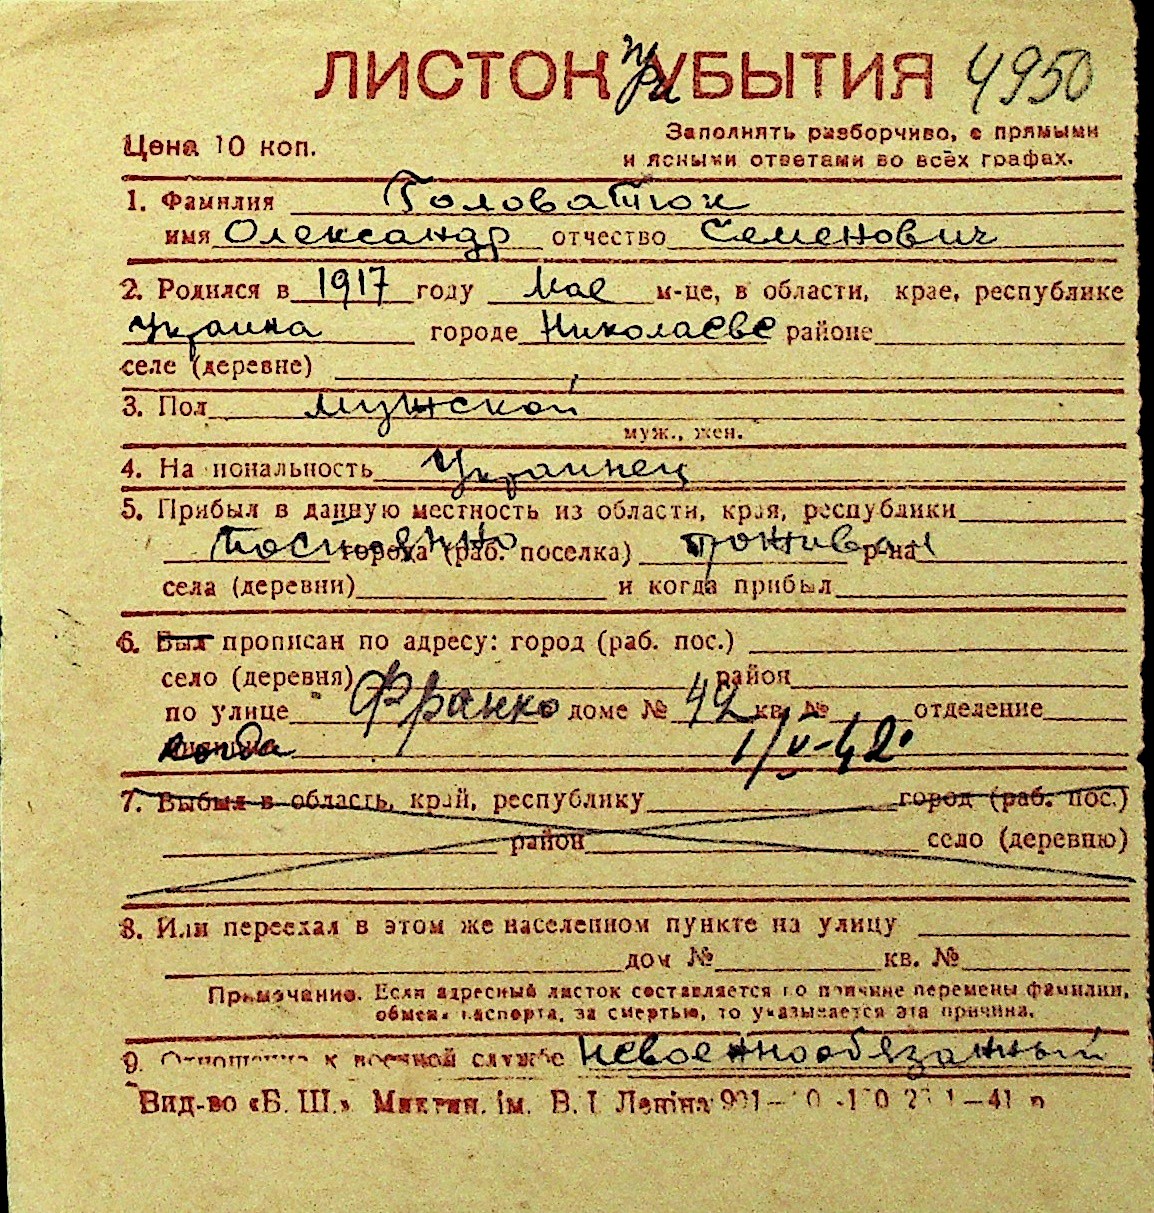 ЛИСТОК при УБЫТИЯ 4950
Цена 10 коп.
Заполнять разборчиво, с прямыми
и ясными ответами во всех графах.
1. Фамилия Головатюк
имя Олександр отчество Семенович
2. Родился в 1917 году Мае м-це, в области, крае, республике
Украина городе Николаеве районе
селе (деревне)
3. Пол мужской
муж., жен.
4. Национальность Украинец
5. Прибыл в данную местность из области, края, республики
Постоянно города (раб. поселка) проживал р-на
села (деревни) и когда прибыл
6. Был прописан по адресу: город (раб. пос.)
село (деревня) район
по улице Франко доме № 42 кв. № отделение
милиции когда 1/V-42.
7. Выбыл в область, край, республику город (раб. пос.)
район село (деревню)
8. Или переехал в этом же населенном пункте на улицу
дом № кв. №
Примечание. Если адресный листок составляется по причине перемены фамилии,
обмена паспорта, за смертью, то указывается эта причина.
9. Отношение к военной службе невоеннообязанный
Вид-во «Б. Ш.» Ім. В. І. Леніна